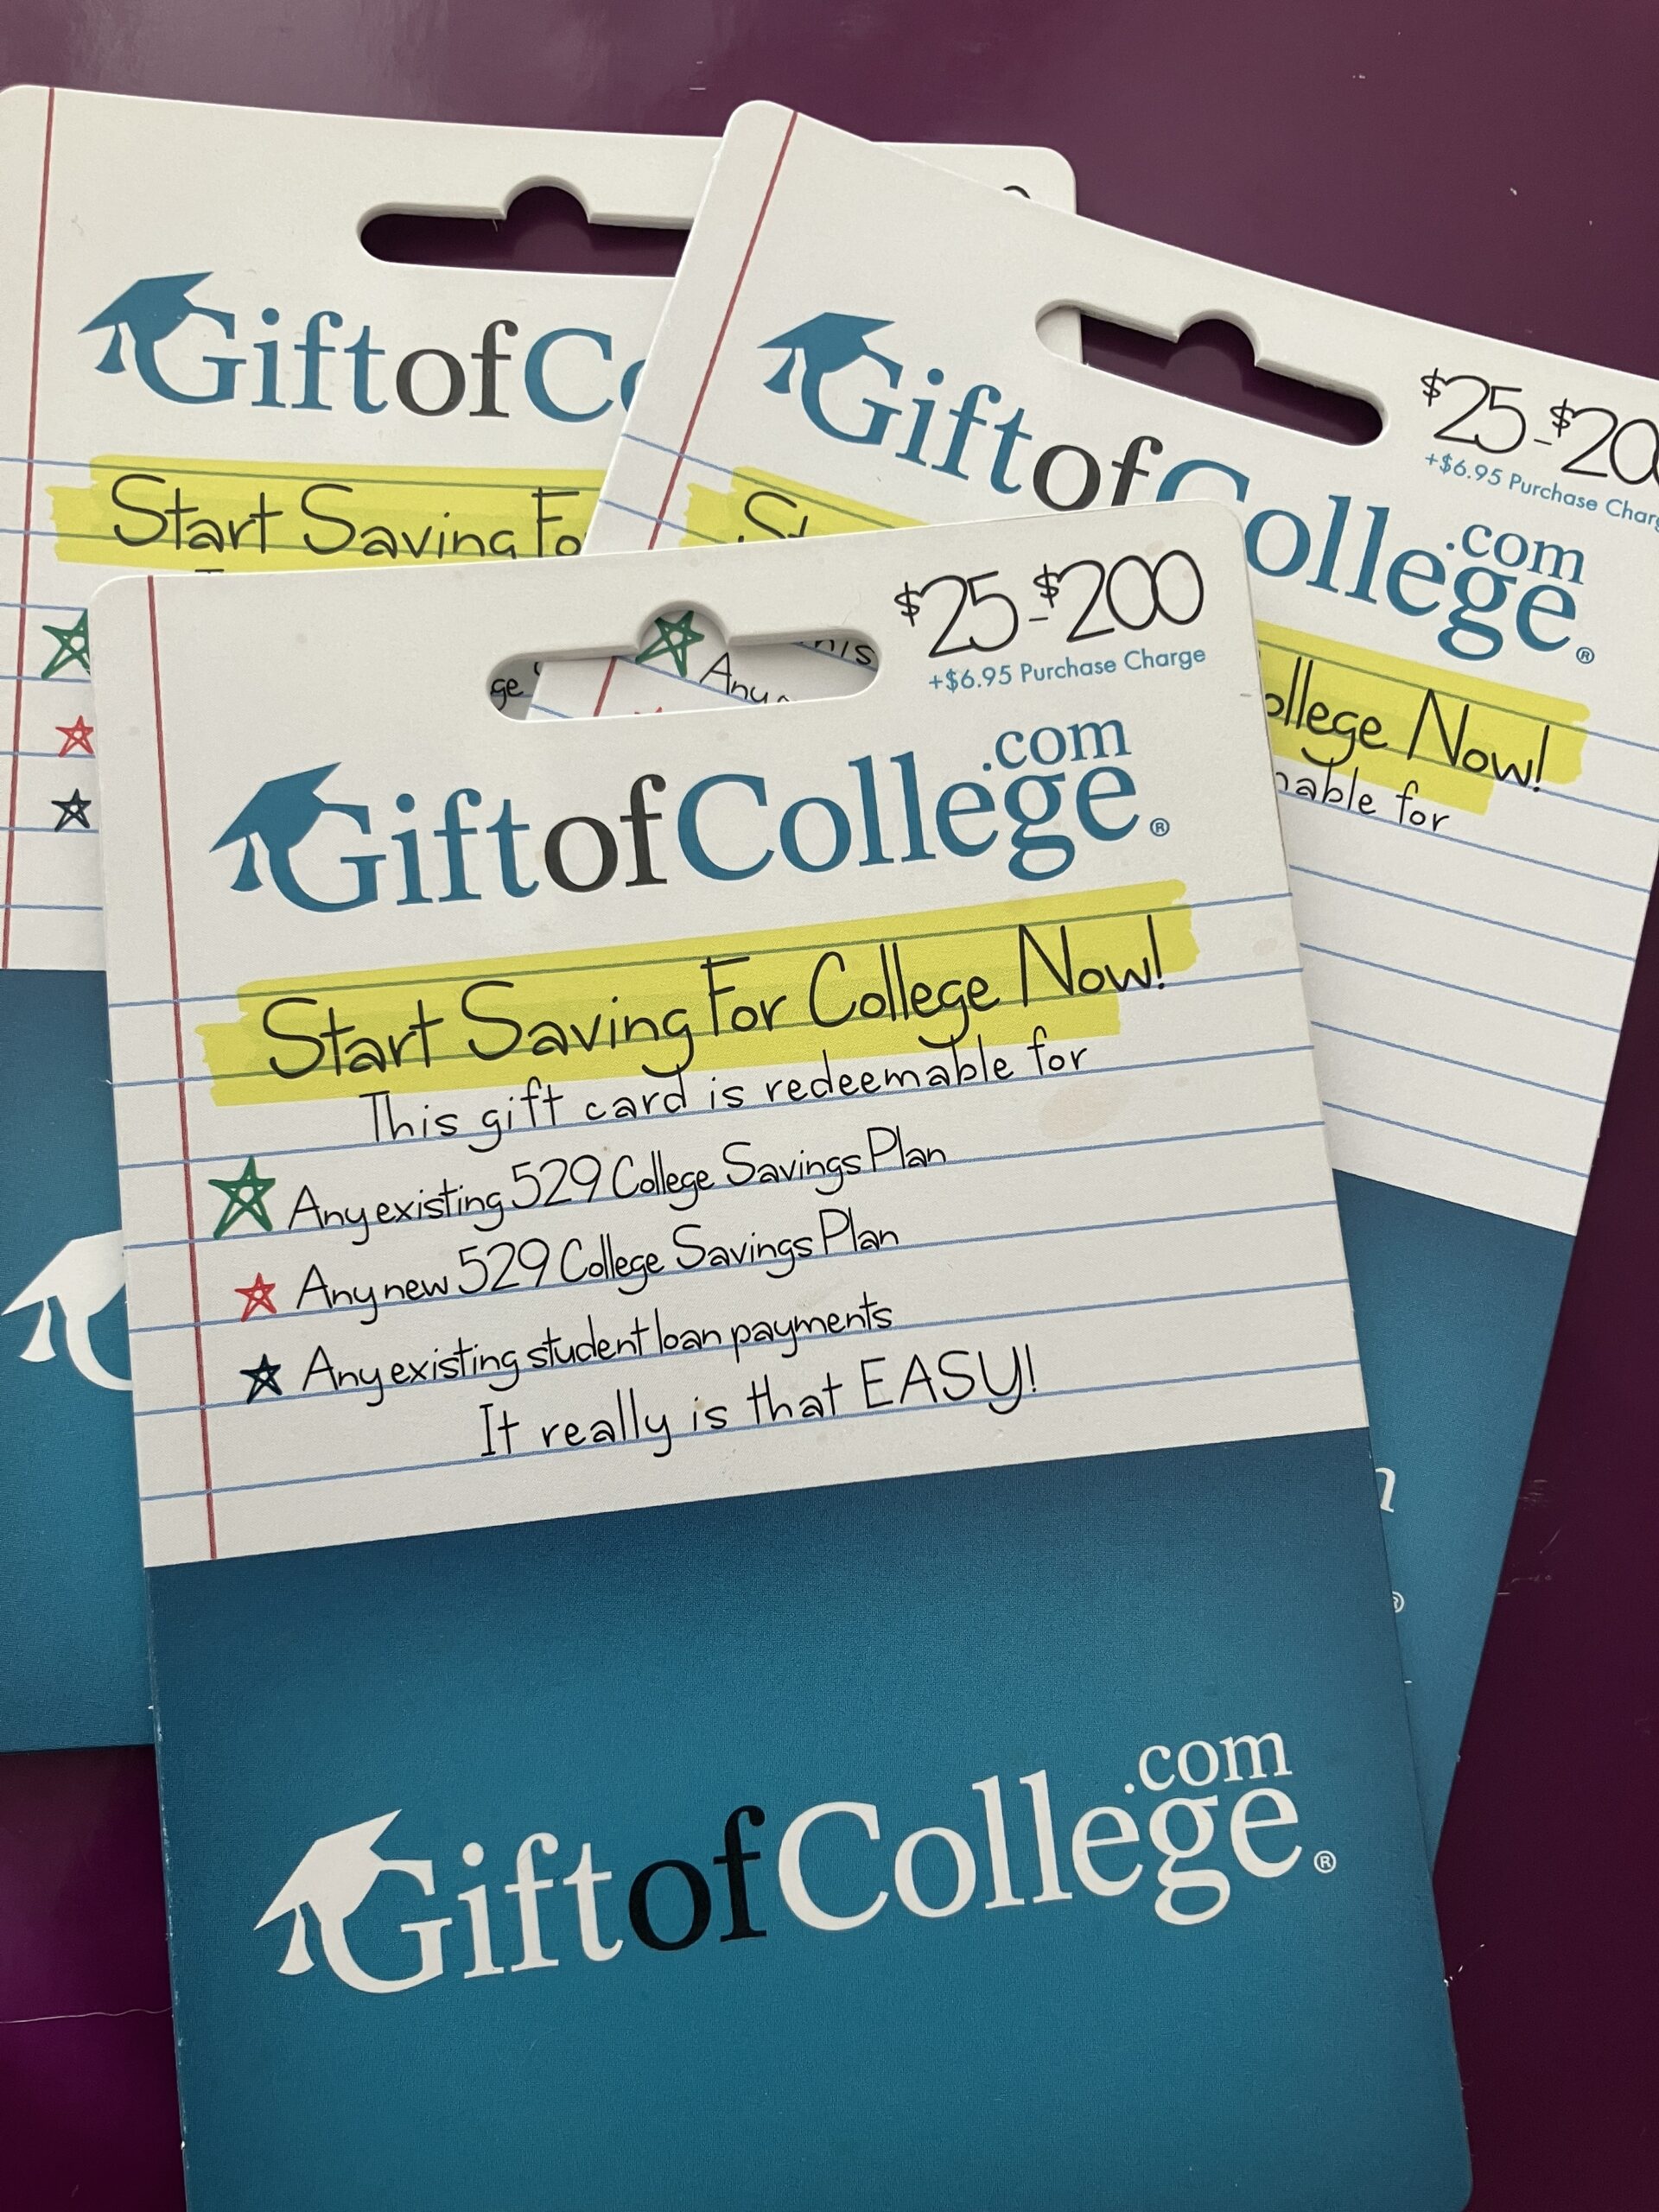 GiftofCo
Start Saving Fo
$25-$20
+$6.95 Purchase Charg
GiftofCollege.com®
St
ollege Now!
mable for
$25-$200
+$6.95 Purchase Charge
ge
his
Any
GiftofCollege.com®
Start Saving For College Now!
This gift card is redeemable for
Any existing 529 College Savings Plan
Any new 529 College Savings Plan
Any existing student loan payments
It really is that EASY!
GiftofCollege.com®
®